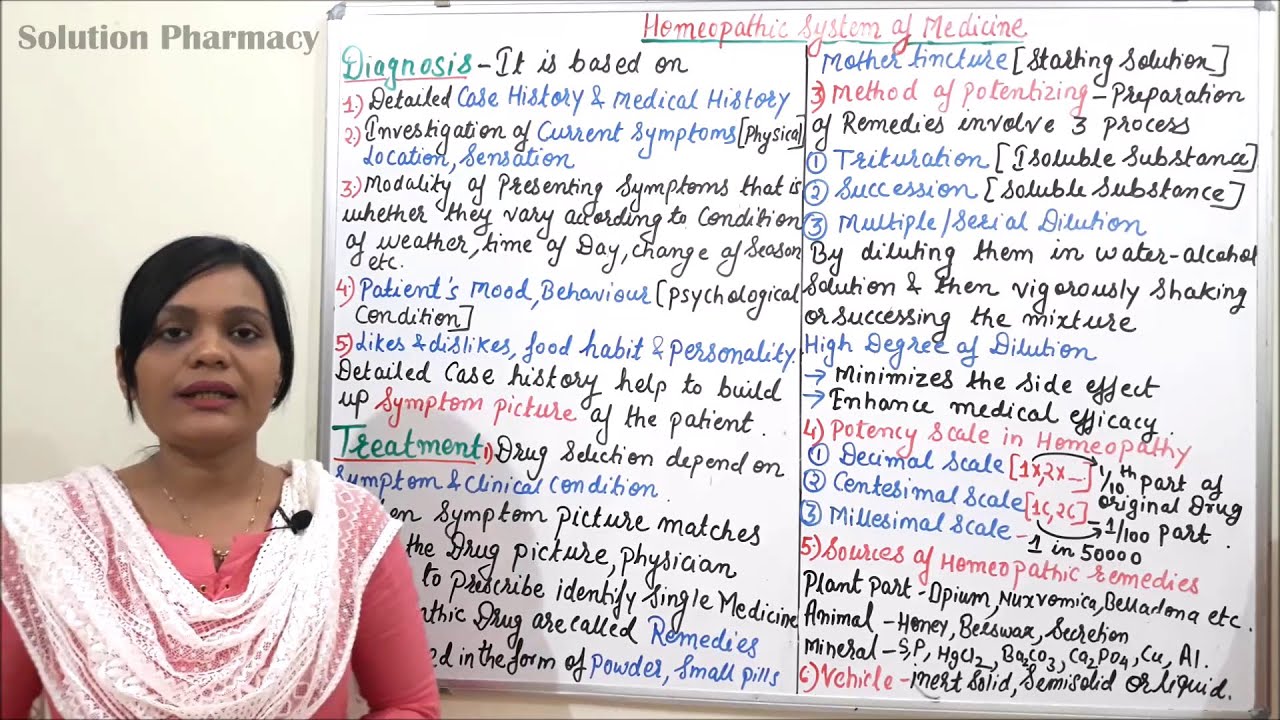 Solution Pharmacy
Homeopathic System of Medicine
Diagnosis - It is based on
1.) Detailed Case History & Medical History
2) Investigation of Current Symptoms [Physical]
Location, Sensation
3.) Modality of Presenting Symptoms that is
whether they vary according to Condition
of weather, time of Day, change of Season
etc.
4.) Patient's Mood, Behaviour [Psychological
Condition]
5.) Likes & dislikes, food habit & Personality.
Detailed Case history help to build
up Symptom picture of the patient.
Treatment 1) Drug Selection depend on
Symptom & Clinical Condition.
en Symptom picture matches
the Drug picture, physician
to prescribe identify Single Medicine
thic Drug are called Remedies
ed in the form of Powder, Small pills
Mother tincture [Starting Solution]
3) Method of Potentizing - Preparation
of Remedies involve 3 process
① Trituration [Isoluble Substance]
② Succession [Soluble Substance]
③ Multiple/Serial Dilution
By diluting them in water-alcohol
Solution & then vigorously shaking
or successing the mixture
High Degree of Dilution
→ Minimizes the side effect
→ Enhance medical efficacy.
4) Potency Scale in Homeopathy
① Decimal Scale [1X, 2X -] 1/10th part of
② Centesimal Scale [1C, 2C] original Drug
→ 1/100 part.
③ Millesimal Scale - 1 in 50000
5) Sources of Homeopathic remedies
Plant Part - Opium, Nuxvomica, Belladona etc.
Animal - Honey, Beeswax, Secretion
Mineral - S, P, HgCl2, Ba2CO3, Ca2PO4, Cu, Al.
6) Vehicle - inert Solid, Semisolid or liquid.